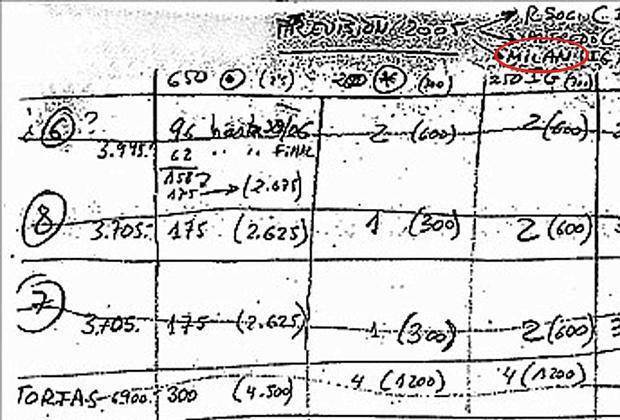 PREVISION 2005 → R Soci. C I
MILAN IG
650 (15) 200 * (300) 250 IG (300)
¿ 6 ? 96 hasta 30/06 2 (600) 2 (600)
3.995? 62 " " FINAL
158?
175 → (2.625)
8 3.705. 175 (2.625) 1 (300) 2 (600)
7 3.705. 175 (2.625) 1 (300) 2 (600) 3
TORTAS 6900. 300 (4.500) 4 (1200) 4 (1200)